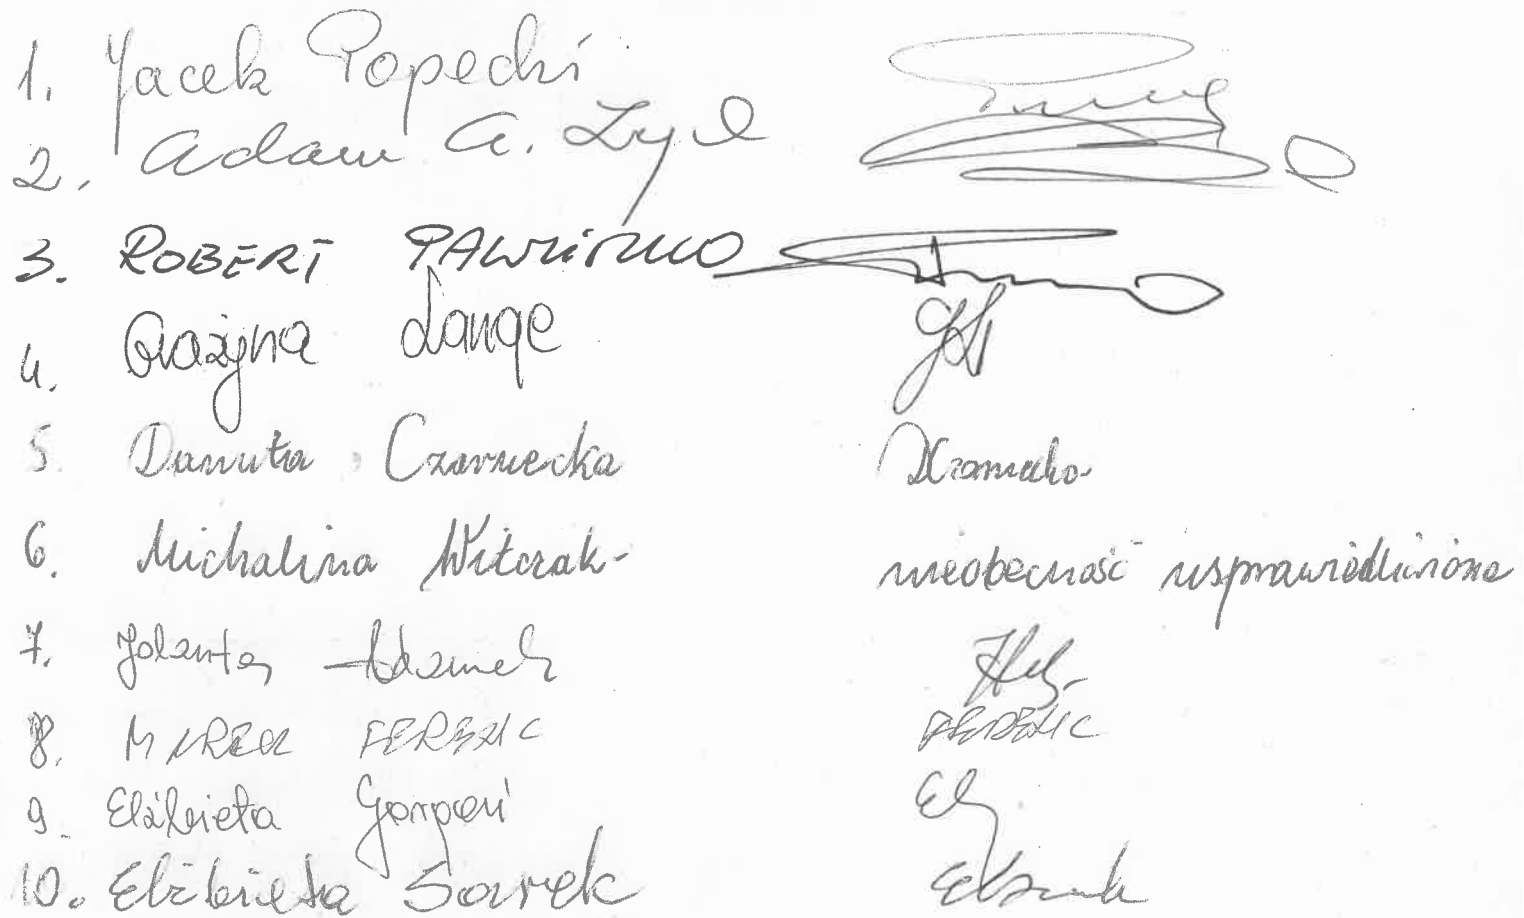 1. Jacek Popecki
2. Adam A. Zych
3. ROBERT PAWLISZKO
4. Grażyna Lange
5. Danuta Czarnecka DCzarnecka
6. Michalina Witczak- nieobecność usprawiedliwiona
7. Jolanta Adamek
8. MAREK FERENC FERENC
9. Elżbieta
10. Elżbieta Sarek